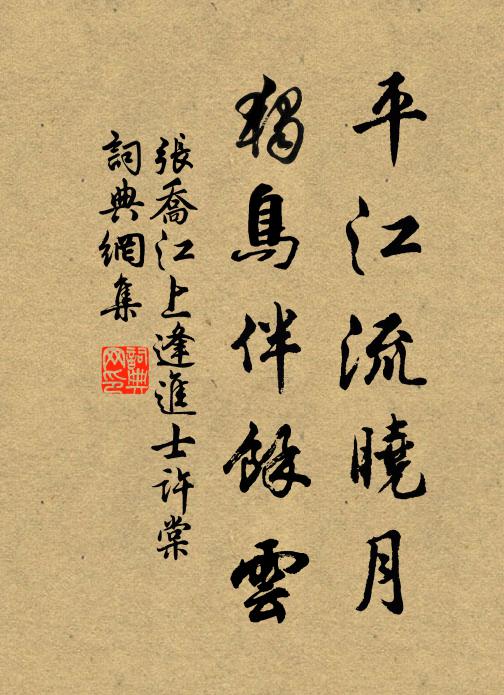 平江流曉月
獨鳥伴餘雲
張喬江上逢進士許棠
詞典網集
詞典网印